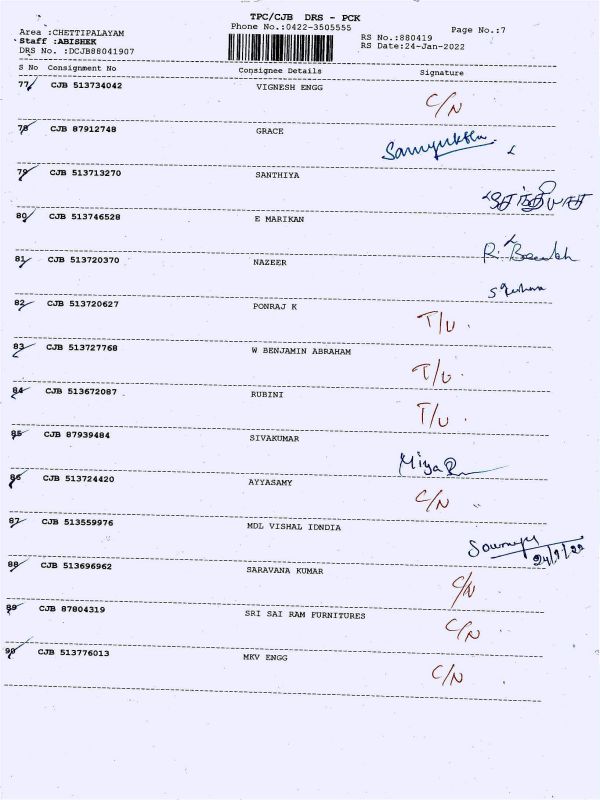 TPC/CJB DRS - PCK
Area :CHETTIPALAYAM Phone No.:0422-3505555 Page No.:7
Staff :ABISHEK RS No.:880419
DRS No. :DCJB88041907 RS Date:24-Jan-2022
S No Consignment No Consignee Details Signature
77 CJB 513734042 VIGNESH ENGG C/N
78 CJB 87912748 GRACE
79 CJB 513713270 SANTHIYA
80 CJB 513746528 E MARIKAN
81 CJB 513720370 NAZEER
82 CJB 513720627 PONRAJ K T/U.
83 CJB 513727768 W BENJAMIN ABRAHAM T/U.
84 CJB 513672087 RUBINI T/U.
85 CJB 87939484 SIVAKUMAR
86 CJB 513724420 AYYASAMY C/N
87 CJB 513559976 MDL VISHAL IDNDIA 24/1/22
88 CJB 513696962 SARAVANA KUMAR C/N
89 CJB 87804319 SRI SAI RAM FURNITURES C/N
90 CJB 513776013 MKV ENGG C/N